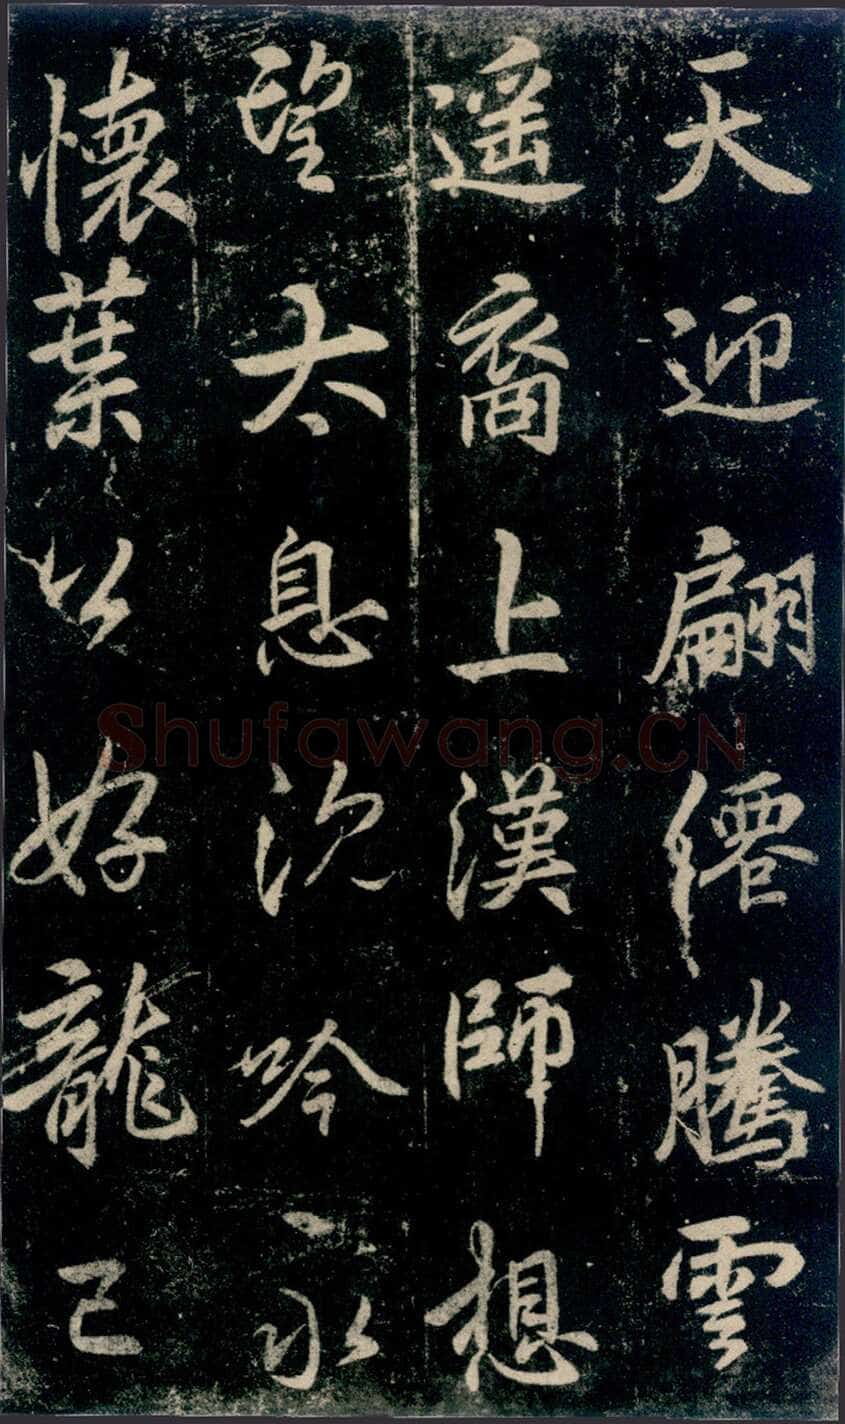 天迎翩僊騰雲
遥裔上漢師想
望太息沉吟永
懷葉以好龍己
Shufawang.CN